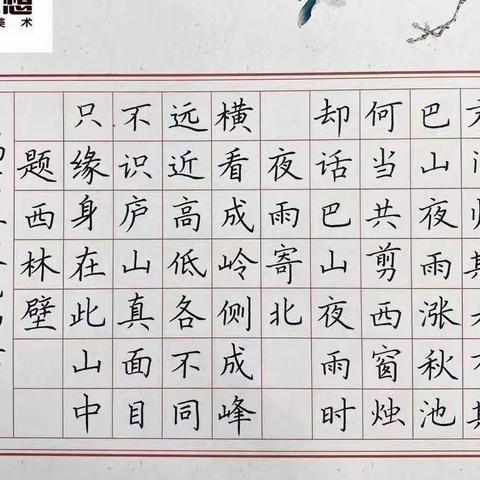 想
美术
巴山夜雨涨秋池
何当共剪西窗烛
却话巴山夜雨时
夜雨寄北
横看成岭侧成峰
远近高低各不同
不识庐山真面目
只缘身在此山中
题西林壁